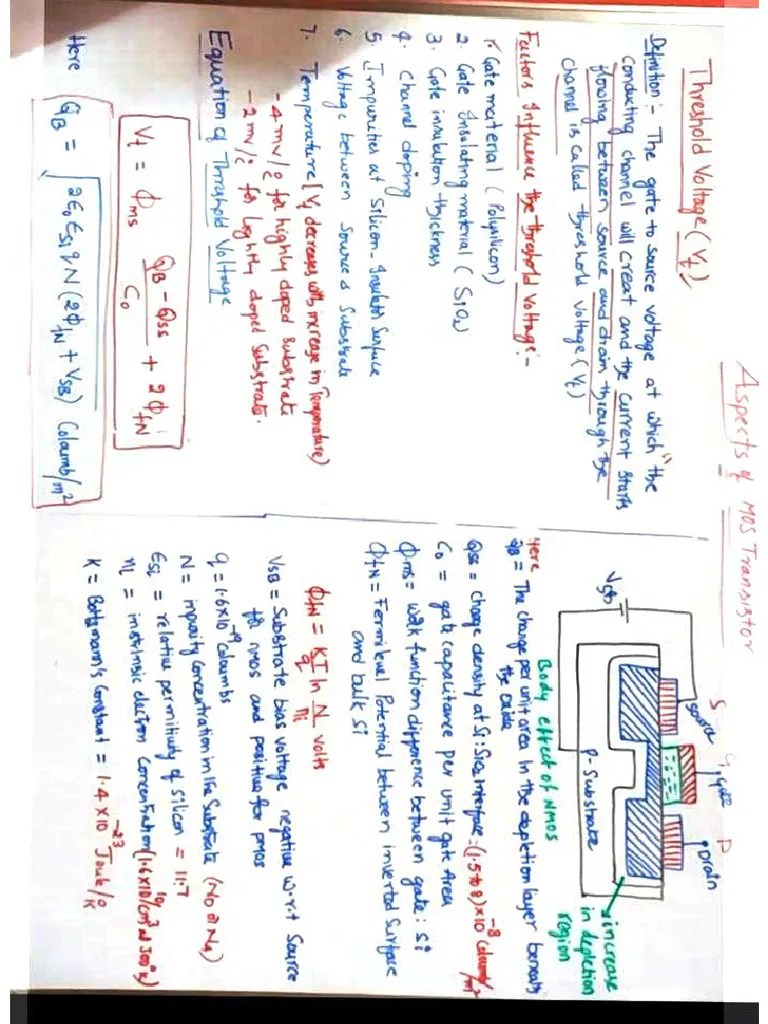 Aspects of MOS Transistor
Threshold Voltage (Vt)
Definition:- The gate to source voltage at which "the
conducting channel will creat and the current starts
flowing between source and drain through the
channel is called threshold voltage (Vt)
Factors Influence the threshold voltage:-
1. Gate material (Polysilicon)
2. Gate Insulating material (SiO2)
3. Gate insulation thickness
4. Channel doping
5. Impurities at Silicon-Insulator surface
6. Voltage between Source & Substrate
7. Temperature [Vt decreases with increase in Temperature)
-4 mv/°c for highly doped substrate
-2 mv/°c for lightly doped substrate.
Equation of Threshold Voltage
Vt = Φms QB - Qss / Co + 2ΦfN
Here QB = √2ε0 εSi q N (2ΦfN + VSB) Coloumb/m²
S G D
source Gate Drain
VSB
P-Substrate
increase
in depletion
region
Body effect of NMOS
Here
QB = The charge per unit area in the depletion layer beneath
the oxide
Qss = Charge density at Si:SiO2 interface = (1.5 to 8) x 10^-8 Coloumb/m²
Co = gate capacitance per unit gate Area
Φms = work function difference between gate: Si
ΦfN = Fermi level Potential between inverted surface
and bulk Si
ΦfN = KT/q ln N/ni volts
VSB = Substrate bias voltage negative w.r.t Source
for nmos and positive for pmos
q = 1.6 x 10^-19 Coloumbs
N = impurity Concentration in the Substrate (ND or NA)
εSi = relative permitivity of Silicon = 11.7
ni = instrinsic electron Concentration (1.6x10^10/cm³ at 300°k)
K = Boltzmann's Constant = 1.4 x 10^-23 Joule/°k